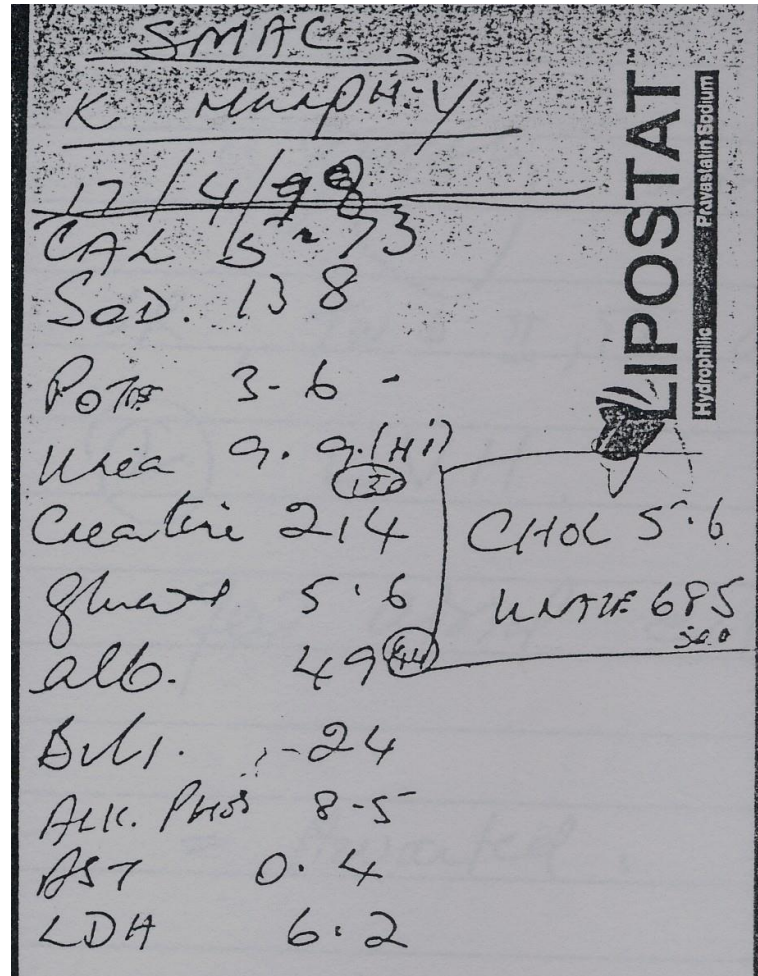 SMAC
K Murphy
17/4/98
CAL 5.73
SOD. 138
POTAS 3-6 -
Urea 9.9.(Hi)
130
Creantine 214
Glucose 5.6
alb. 49 44
Bili. -24
ALK. PHOS 8-5
AST 0.4
LDH 6.2
CHOL 5.6
URATE 685
500
LIPOSTAT™
Hydrophilic Pravastatin Sodium